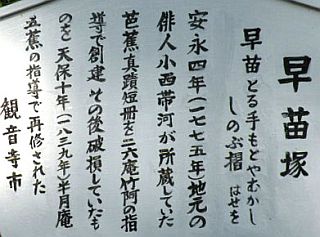 早苗塚
早苗とる手もとやむかし
しのぶ摺 はせを
安永四年(一七七五年)地元の
俳人小西帯河が所蔵していた
芭蕉真蹟短冊を二六庵竹阿の指
導で創建 その後破損していたも
のを 天保十年(一八三九年)半月庵
の指導で再修された
観音寺市